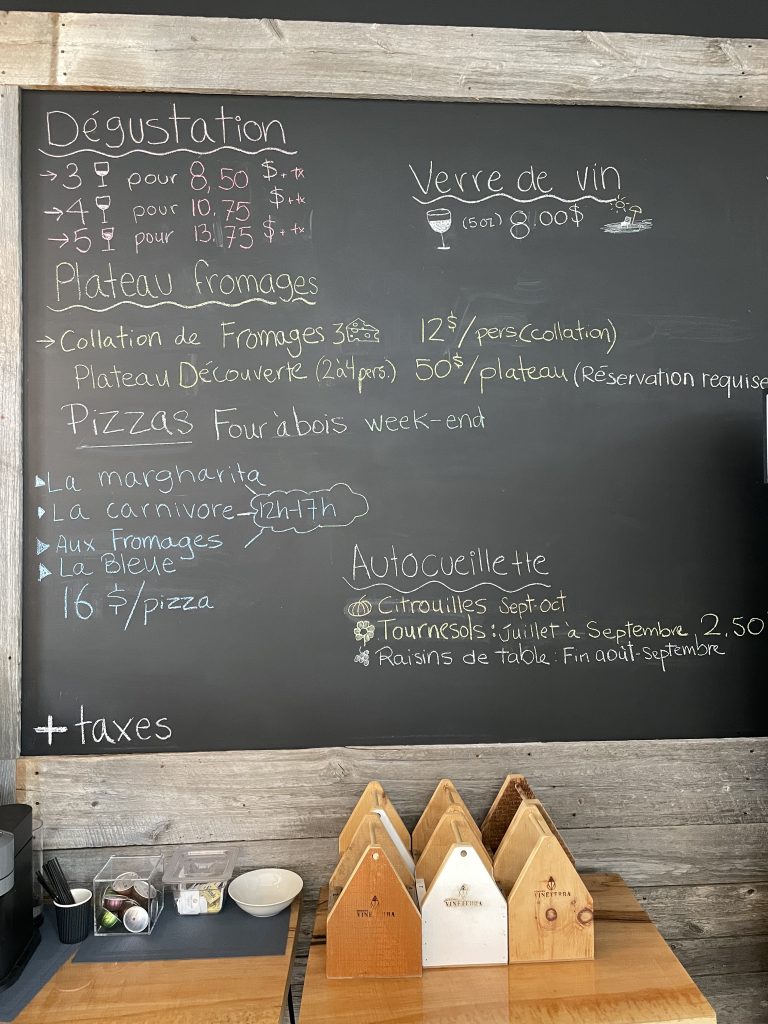 Dégustation
→3 pour 8,50 $+tx
→4 pour 10,75 $+tx
→5 pour 13,75 $+tx
Verre de vin
(5oz) 8.00$
Plateau fromages
→ Collation de Fromages 3 12$/pers(collation)
Plateau Découverte (2 à 4 pers.) 50$/plateau (Réservation requise
Pizzas Four à bois week-end
La margharita
La carnivore 12h-17h
Aux Fromages
La Bleue
16 $/pizza
Autocueillette
Citrouilles Sept-oct
Tournesols: Juillet à Septembre 2.50
Raisins de table: Fin août-septembre
+ taxes
VINETERRA
VINETERRA
VINETERRA